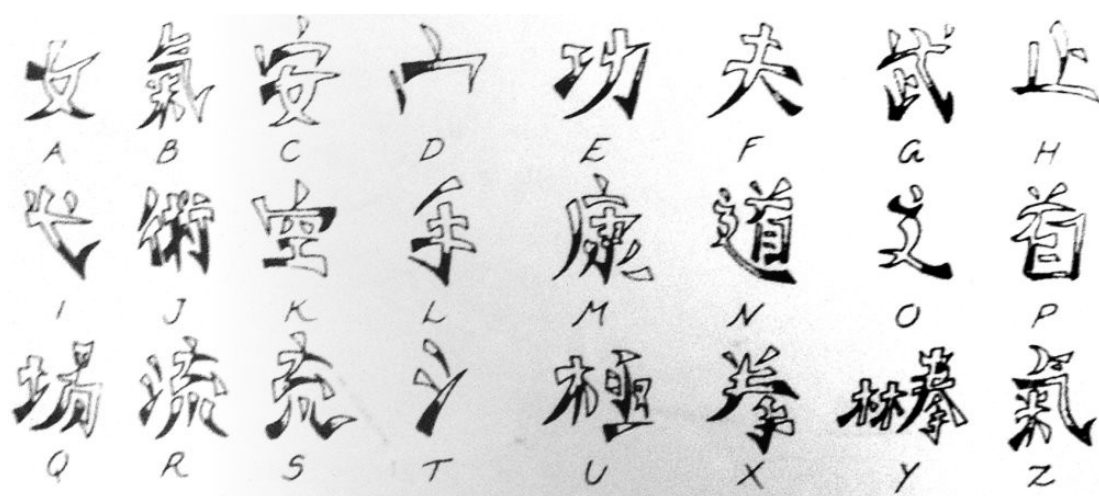 女 氣 安 宀 功 夫 武 止
A B C D E F G H
弋 術 空 手 康 道 首
I J K L M N O P
場 流 㐬 氵 極 拳 林拳 氣
Q R S T U X Y Z